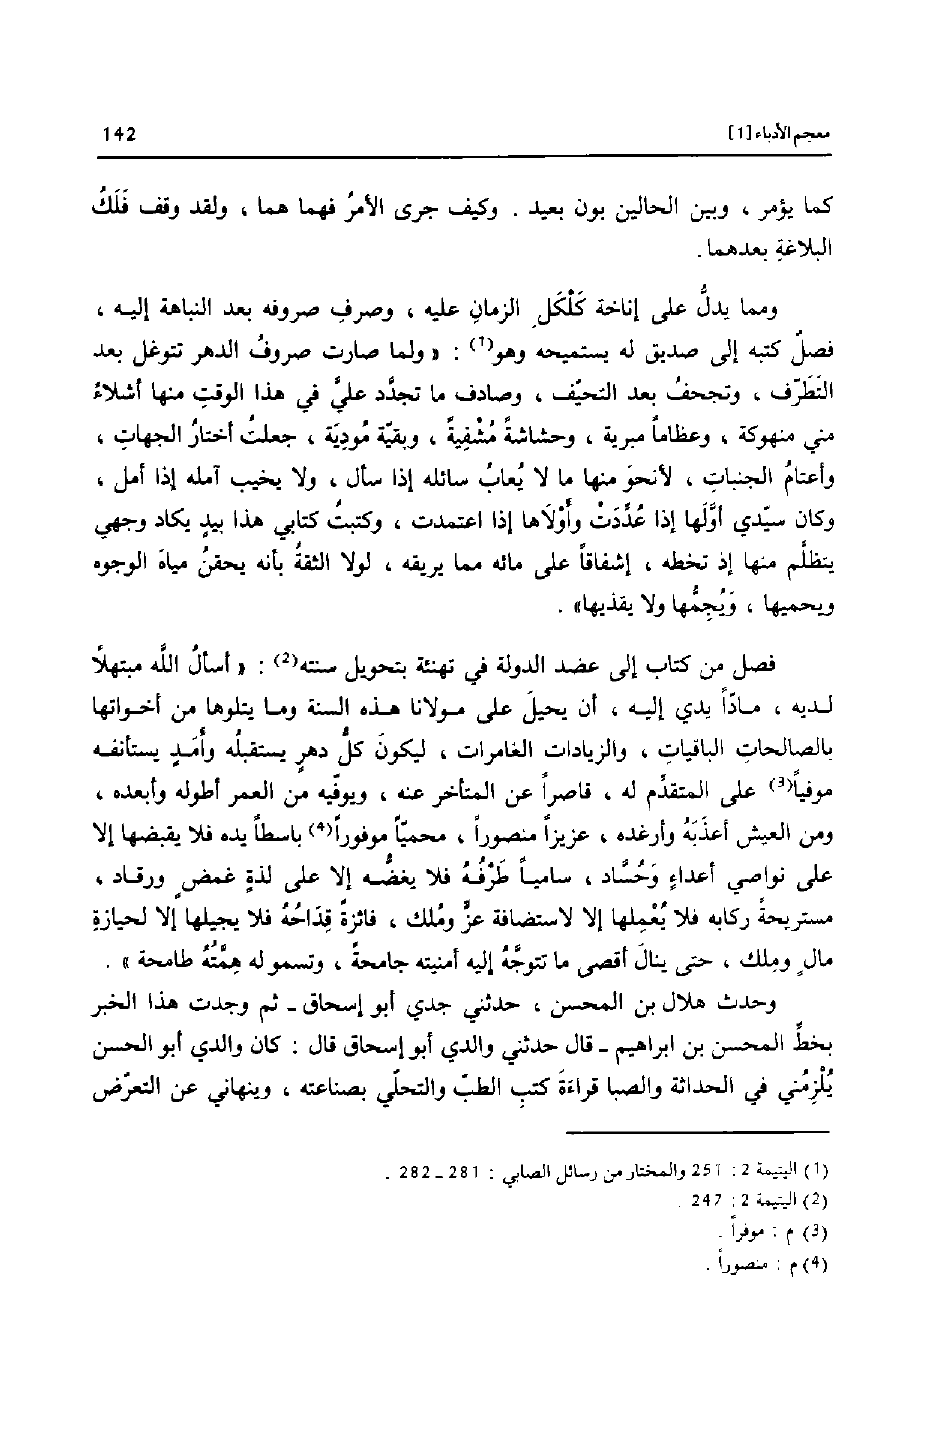 معجم الأدباء [1] 142
كما يؤمر ، وبين الحالين بون بعيد . وكيف جرى الأمرُ فهما هما ، ولقد وقف فَلَكُ
البلاغةِ بعدهما .
ومما يدلُّ على إناخة كَلْكَلِ الزمانِ عليه ، وصرفِ صروفه بعد النباهة إليه ،
فصلٌ كتبه إلى صديق له يستميحه وهو(1) : « ولما صارت صروفُ الدهر تتوغل بعد
التَطَرّف ، وتجحفُ بعد التحيّف ، وصادف ما تجدَّد عليَّ في هذا الوقتِ منها أشلاءً
مني منهوكة ، وعظاماً مبرية ، وحشاشةً مُشْفِيةً ، وبقيّة مُودِيَة ، جعلتُ أختارُ الجهاتِ ،
وأعتامُ الجنباتِ ، لأنحوَ منها ما لا يُعابُ سائله إذا سأل ، ولا يخيب آمله إذا أمل ،
وكان سيّدي أوَّلَها إذا عُدِّدَتْ وأَوْلَاها إذا اعتمدت ، وكتبتُ كتابي هذا بيدٍ يكاد وجهي
يتظلَّم منها إذ تخطه ، إشفاقاً على مائه مما يريقه ، لولا الثقةُ بأنه يحقنُ مياهَ الوجوه
ويحميها ، وَيُجِمُّها ولا يقذيها» .
فصل من كتاب إلى عضد الدولة في تهنئة بتحويل سنته(2) : « أسألُ اللَّه مبتهلاً
لديه ، مادّاً يدي إليه ، أن يحيلَ على مولانا هذه السنة وما يتلوها من أخواتها
بالصالحاتِ الباقياتِ ، والزيادات الغامرات ، ليكونَ كلُّ دهرٍ يستقبلُه وأَمَدٍ يستأنفه
موفياً(3) على المتقدِّم له ، قاصراً عن المتأخر عنه ، ويوفّيه من العمر أطوله وأبعده ،
ومن العيش أعذَبَهُ وأرغده ، عزيزاً منصوراً ، محميّاً موفوراً(4) باسطاً يده فلا يقبضها إلا
على نواصي أعداءٍ وَحُسَّاد ، سامياً طَرْفُهُ فلا يغضُّه إلا على لذةِ غمضٍ ورقاد ،
مستريحةً ركابه فلا يُعْمِلها إلا لاستضافة عزٍّ ومُلك ، فائزةً قِدَاحُهُ فلا يجيلها إلا لحيازةِ
مالٍ وملك ، حتى ينالَ أقصى ما تتوجَّهُ إليه أمنيته جامحةً ، وتسمو له هِمَّتُهُ طامحة » .
وحدث هلال بن المحسن ، حدثني جدي أبو إسحاق ـ ثم وجدت هذا الخبر
بخطِّ المحسن بن ابراهيم ـ قال حدثني والدي أبو إسحاق قال : كان والدي أبو الحسن
يُلْزِمُني في الحداثة والصبا قراءةَ كتبِ الطبّ والتحلّي بصناعته ، وينهاني عن التعرّض
(1) اليتيمة 2 : 251 والمختار من رسائل الصابي : 281 ـ 282 .
(2) اليتيمة 2 : 247 .
(3) م : موفراً .
(4) م : منصوراً .